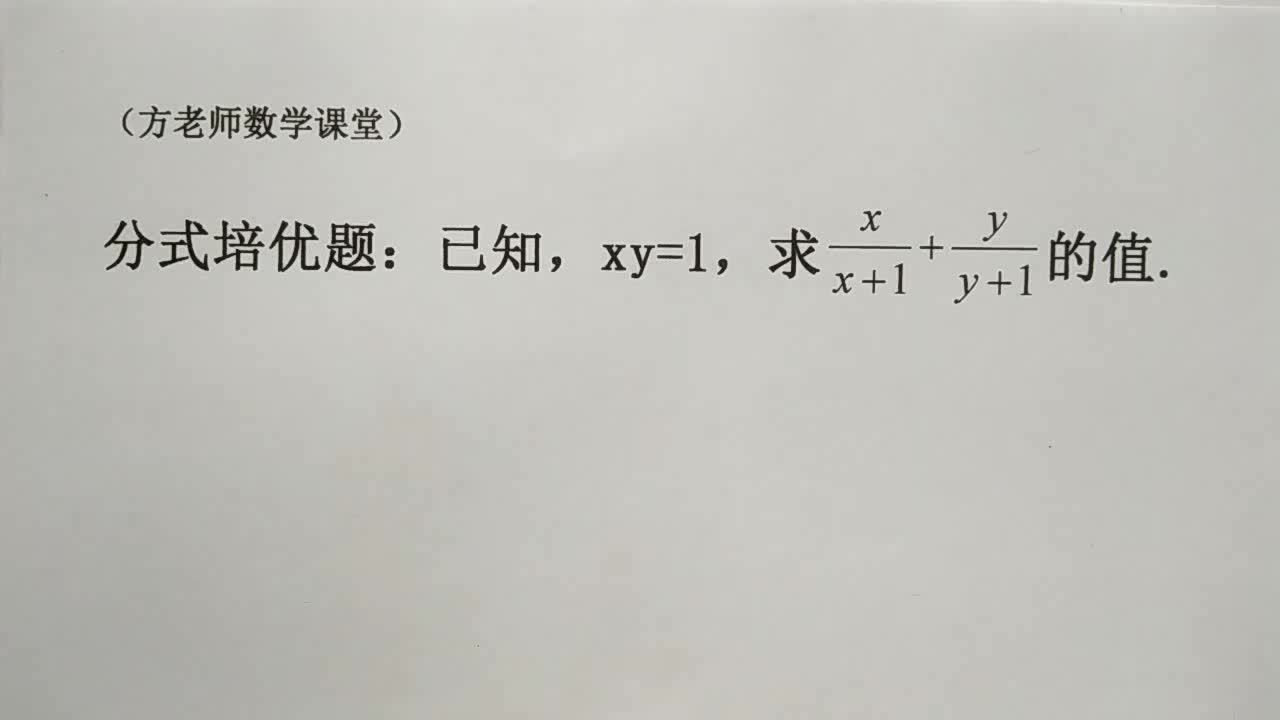 （方老师数学课堂）
分式培优题：已知，xy=1，求 \frac{x}{x+1}+\frac{y}{y+1} 的值.